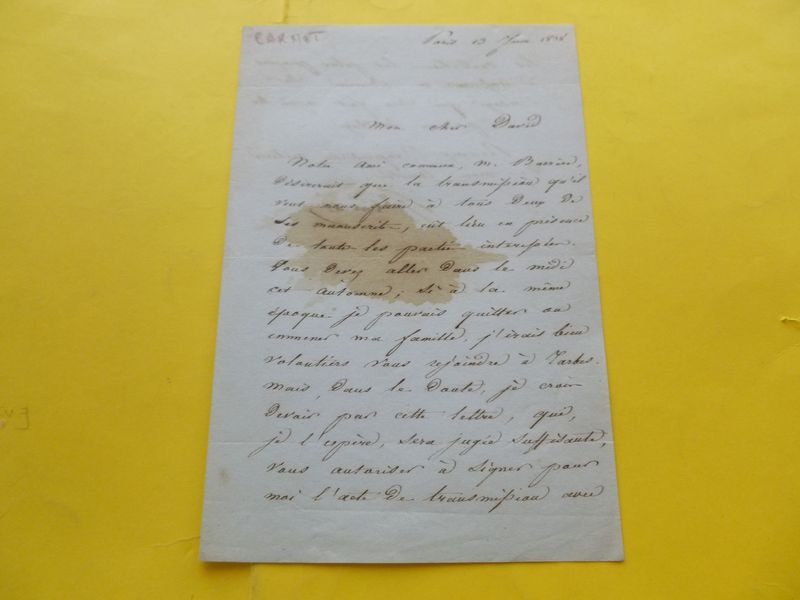 CARNOT
Paris 13 Juin 1838
Mon cher David
Notre ami commun, M. Barrère,
désirerait que la transmission qu'il
veut nous faire à tous deux de
ses manuscrits, eut lieu en présence
de toute les parties intéressées.
Vous devez aller dans le midi
cet automne; si à la même
époque je pouvais quitter ou
emmener ma famille, j'irais bien
volontiers vous rejoindre à Tarbes.
mais, dans le doute, je crois
devoir par cette lettre, qui,
je l'espère, sera jugée suffisante,
vous autoriser à signer pour
moi l'acte de transmission avec